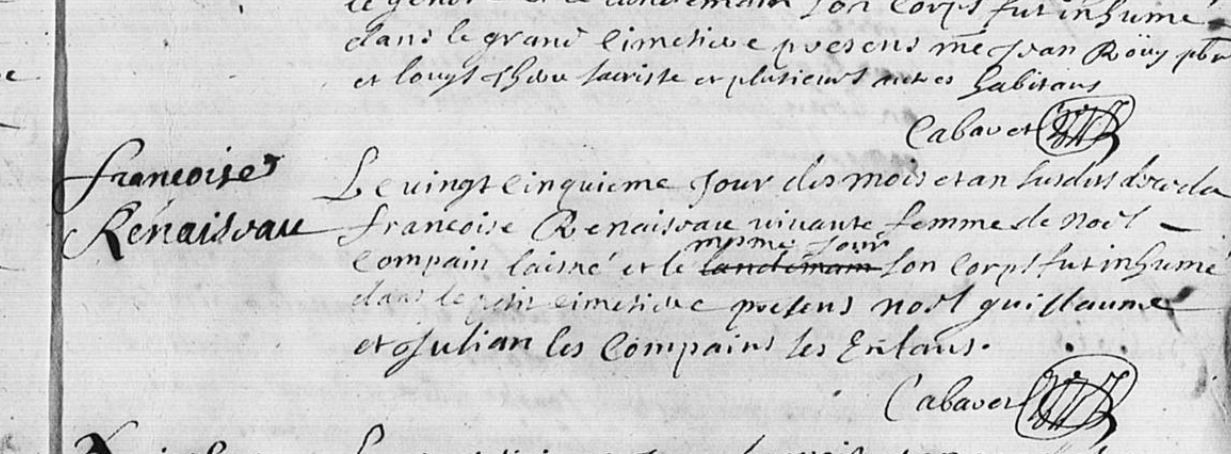 son corps fut inhumé
dans le grand cimetiere presens me Jean Roüy pbr
et louys sacriste et plusieurs autres habitans
Cabaret
francoise Le vingt cinquieme jour des mois et an susdits deceda
Renaiseau francoise Renaiseau vivante femme de noel
mesme jour
compain laisné et le landemain son corps fut inhumé
dans le petit cimetiere presens noel guillaume
et Julian les Compains ses Enfans.
Cabaret